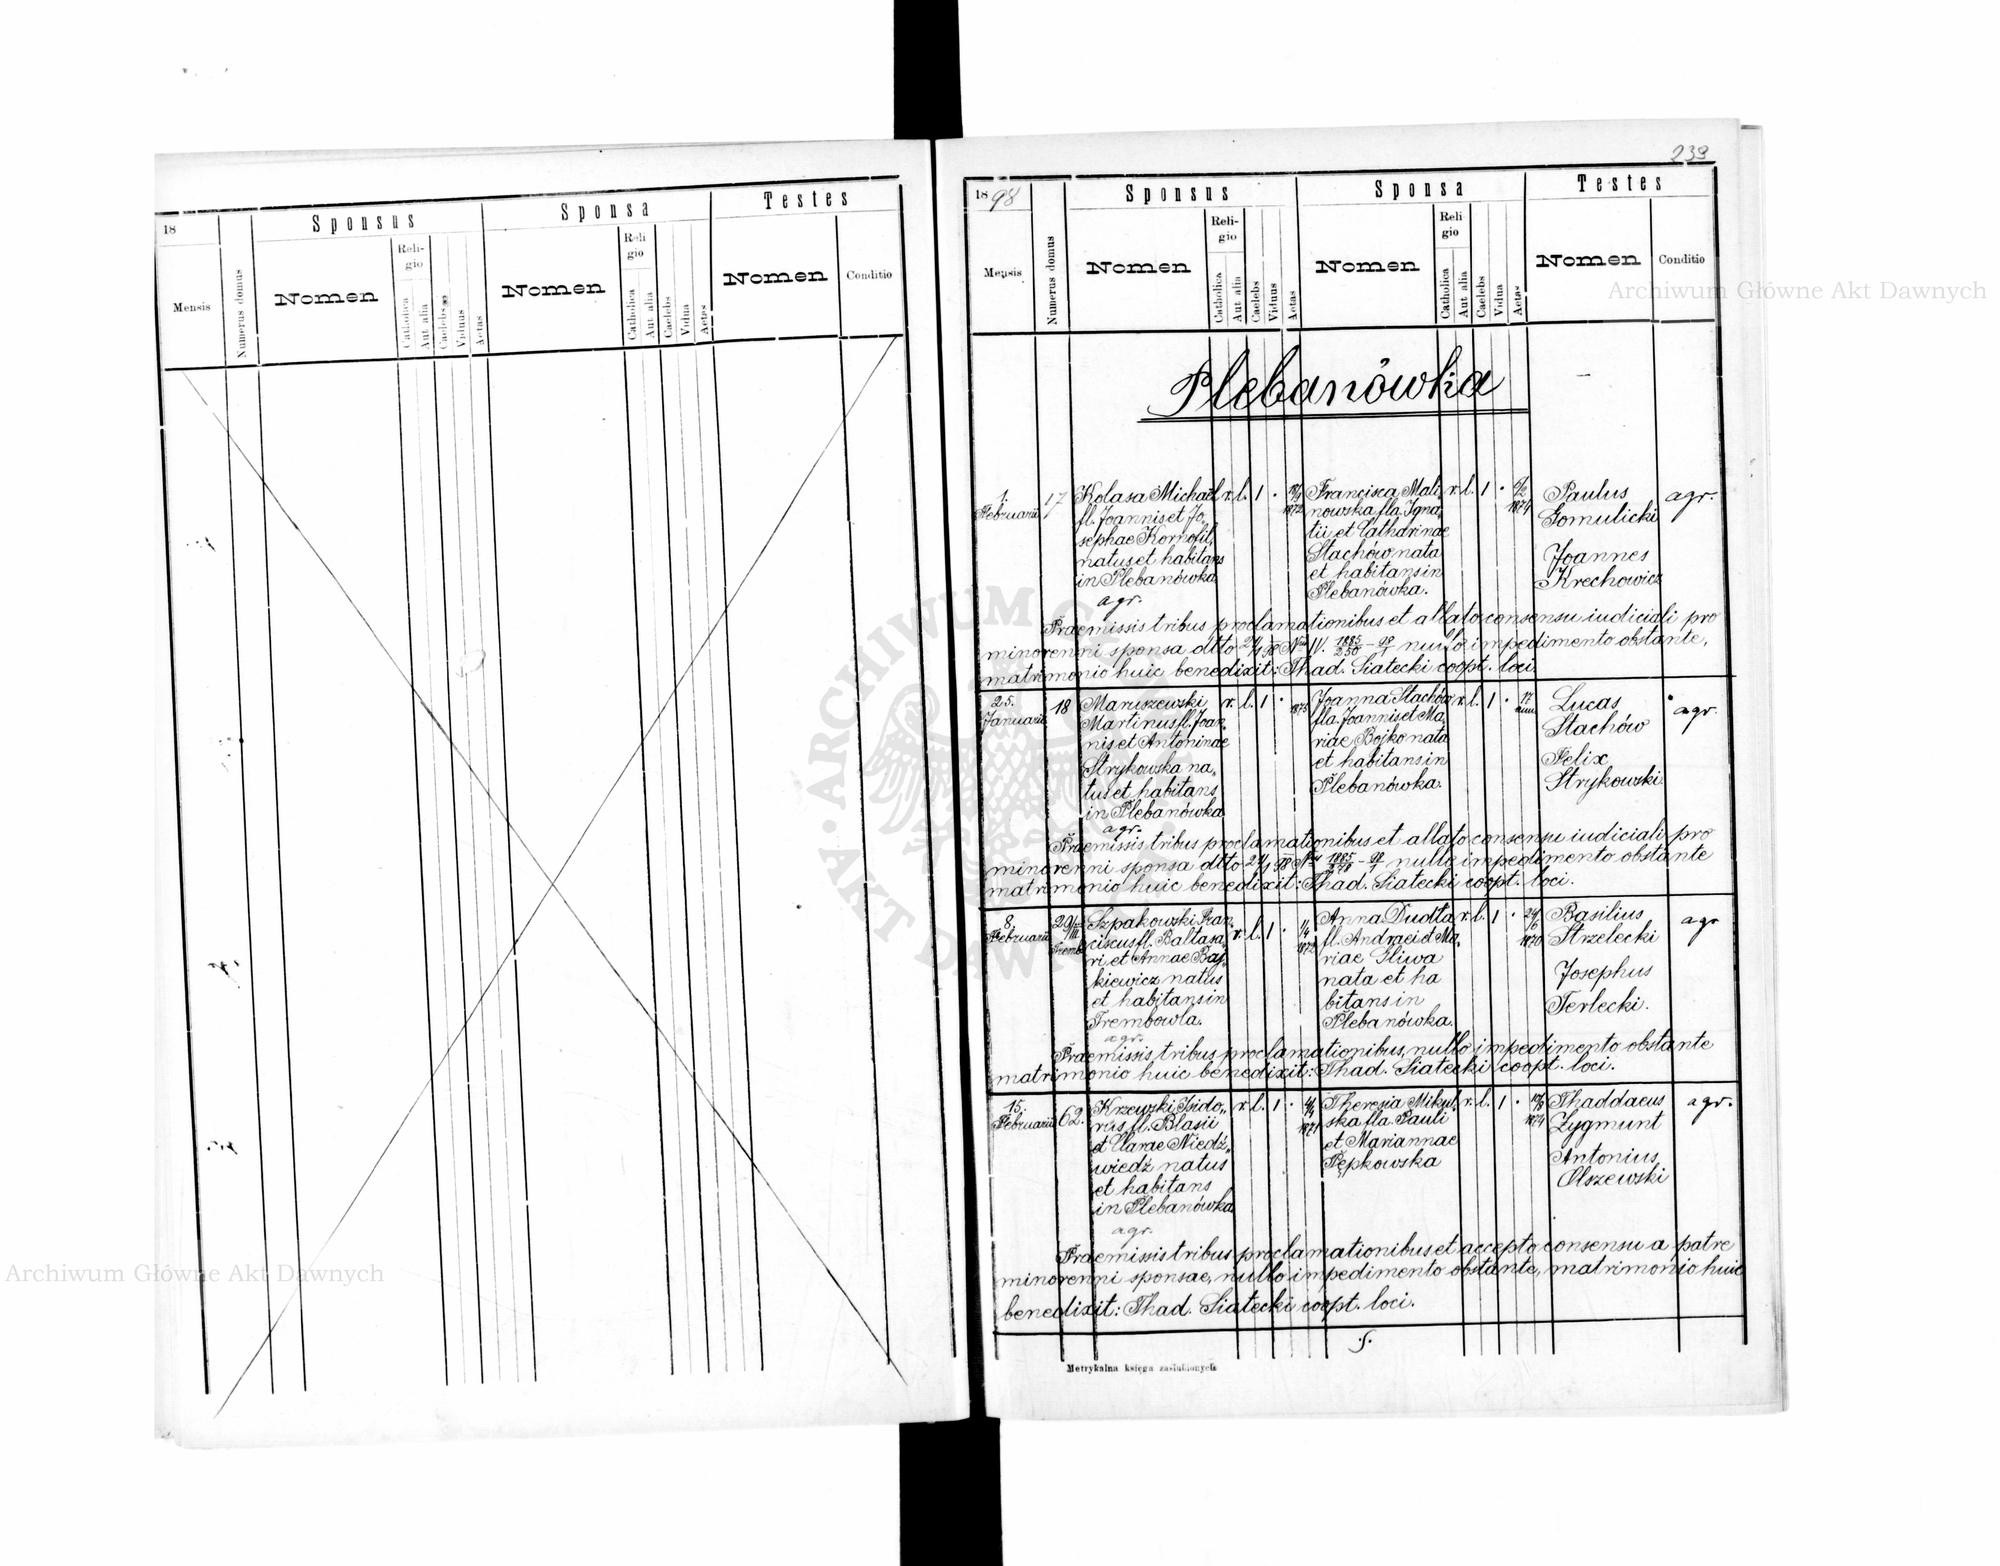 239
18
Mensis
Numerus domus
Sponsus
Nomen
Religio
Catholica
Aut alia
Caelebs
Viduus
Aetas
Sponsa
Nomen
Religio
Catholica
Aut alia
Caelebs
Vidua
Aetas
Testes
Nomen
Conditio
1898
Mensis
Numerus domus
Sponsus
Nomen
Reli-
gio
Catholica
Aut alia
Caelebs
Viduus
Aetas
Sponsa
Nomen
Reli
gio
Catholica
Aut alia
Caelebs
Vidua
Aetas
Testes
Nomen
Conditio
Plebanówka
1.
Februarii
17
Kolasa Michael
fl. Joannis et Jo,
sephae Kornofil,
natus et habitans
in Plebanówka
agr.
r. l. 1 .
1872
Francisca Mali,
nowska fla. Igna,
tii et Catharinae
Stachów nata
et habitans in
Plebanówka.
r. l. 1 .
6/2
1874
Paulus
Gomulicki
Joannes
Krechowicz
agr.
Praemissis tribus proclamationibus et allato consensu iudiciali pro
minorenni sponsa dtto nullo impedimento obstante,
matrimonio huic benedixit: Thad. Siatecki coopt. loci
25.
Januarii
18
Maruszewski
Martinus fl. Joan,
nis et Antoninae
Strykowska na,
tus et habitans
in Plebanówka
agr.
r. l. 1 .
1875
Joanna Stachów
fla. Joannis et Ma,
riae Bojko nata
et habitans in
Plebanówka.
r. l. 1 .
17
Lucas
Stachów
Felix
Strykowski.
agr.
Praemissis tribus proclamationibus et allato consensu iudiciali pro
minorenni sponsa dtto nullo impedimento obstante
matrimonio huic benedixit: Thad. Siatecki coopt. loci.
8.
Februarii
20
Szpakowski Fran,
ciscus fl. Baltasa,
ri et Annae Baj,
kiewicz natus
et habitans in
Trembowla.
agr.
r. l. 1 .
1872
Anna Dudta
fl. Andraei et Ma,
riae Gliwa
nata et ha
bitans in
Plebanówka.
r. l. 1 .
24/6
1870
Basilius
Strzelecki
Josephus
Terlecki.
agr
Praemissis, tribus proclamationibus, nullo impedimento obstante
matrimonio huic benedixit: Thad. Siatecki coopt. loci.
15.
Februarii
62.
Krzewski Isido,,
rus fl. Blasii
et Clarae Niedź,,
wiedź natus
et habitans
in Plebanówka
agr.
r. l. 1 .
4/4
1871
Theresia Mikul,
ska fla. Pauli
et Mariannae
Pępkowska
r. l. 1 .
1874
Thaddaeus
Zygmunt
Antonius
Olszewski
agr.
Praemissis tribus proclamationibus et accepto consensu a patre
minorenni sponsae, nullo impedimento obstante, matrimonio huic
benedixit: Thad. Siatecki coopt. loci.
Metrykalna księga zaślubionych
Archiwum Główne Akt Dawnych
Archiwum Główne Akt Dawnych